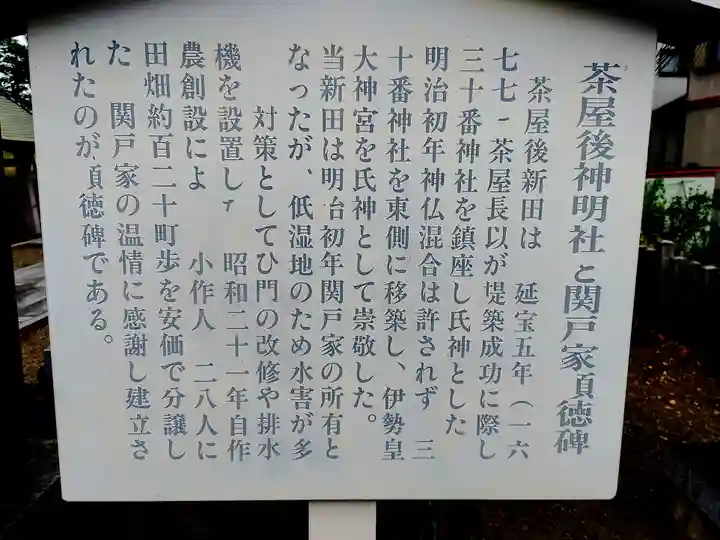 茶屋後神明社と関戸家頁徳碑
茶屋後新田は 延宝五年(一六
七七-茶屋長以が堤築成功に際し
三十番神社を鎮座し氏神とした
明治初年神仏混合は許されず 三
十番神社を東側に移築し、伊勢皇
大神宮を氏神として崇敬した。
当新田は明治初年関戸家の所有と
なったが、低湿地のため水害が多
対策としてひ門の改修や排水
機を設置し 昭和二十一年自作
農創設によ 小作人 二八人に
田畑約百二十町歩を安価で分譲し
た 関戸家の温情に感謝し建立さ
れたのが頁徳碑である。